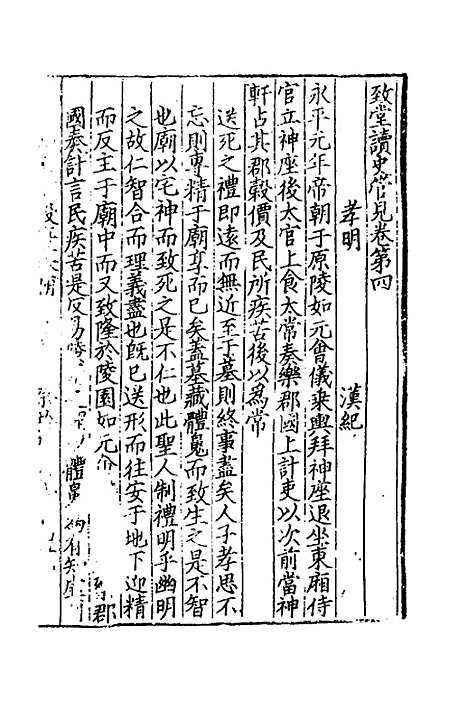 致堂讀史管見卷第四
孝明 漢紀
永平元年帝朝于原陵如元會儀乘輿拜神座退坐東廂侍
官立神座後太官上食太常奏樂郡國上計吏以次前當神
軒占其郡穀價及民所疾苦後以爲常
送死之禮即遠而無近至于墓則終事盡矣人子孝思不
忘則專精于廟享而已矣蓋墓藏體魄而致生之是不智
也廟以宅神而致死之是不仁也此聖人制禮明乎幽明
之故仁智合而理義盡也旣已送形而往安于地下迎精
而反主于廟中而又致隆於陵園如元 郡
國奏計言民疾苦是反易 體魄